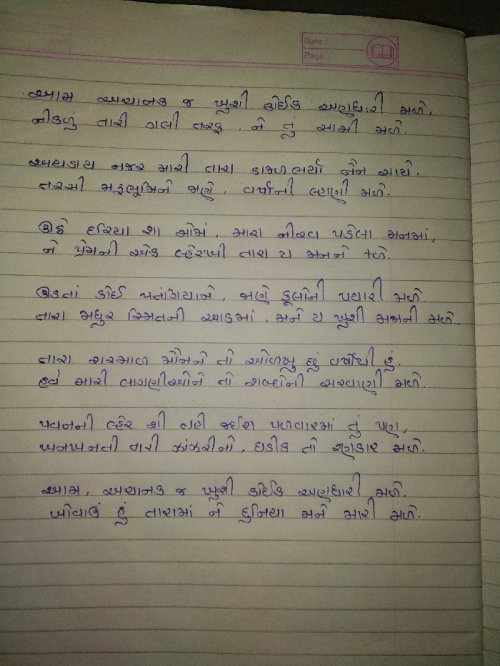 Date :
Page :
આમ અચાનક જ ખુશી કોઈક અણધારી મળે,
નીકળું તારી ગલી તરફ, ને તું સામી મળે.
અથડાય નજર મારી તારા કાજળભર્યા નૈન સાથે,
તરસી મરૂભૂમિને જાણે, વર્ષાની લ્હાણી મળે.
ઊઠે દરિયા શા મોજાં, મારા નીરવ પડેલા મનમાં,
ને પ્રેમની એક લ્હેરખી તારા ય મનને જડે.
ઊડતાં કોઈ પતંગિયાને, જાણે ફૂલોની પથારી મળે
તારા મધુર સ્મિતની આડમાં, મને ય ખુશી મજાની મળે.
તારા શરમાળ મૌનને તો ઓળખું છું વર્ષોથી હું,
હવે મારી લાગણીઓને તો શબ્દોની સરવાણી મળે.
પવનની લ્હેર શી વહી જઈશ પળવારમાં તું પણ,
ખનખનતી તારી ઝાંઝરીનો, ઘડીક તો રણકાર મળે.
આમ, અચાનક જ ખુશી કોઈક અણધારી મળે.
ખોવાઉં હું તારામાં ને દુનિયા મને મારી મળે.